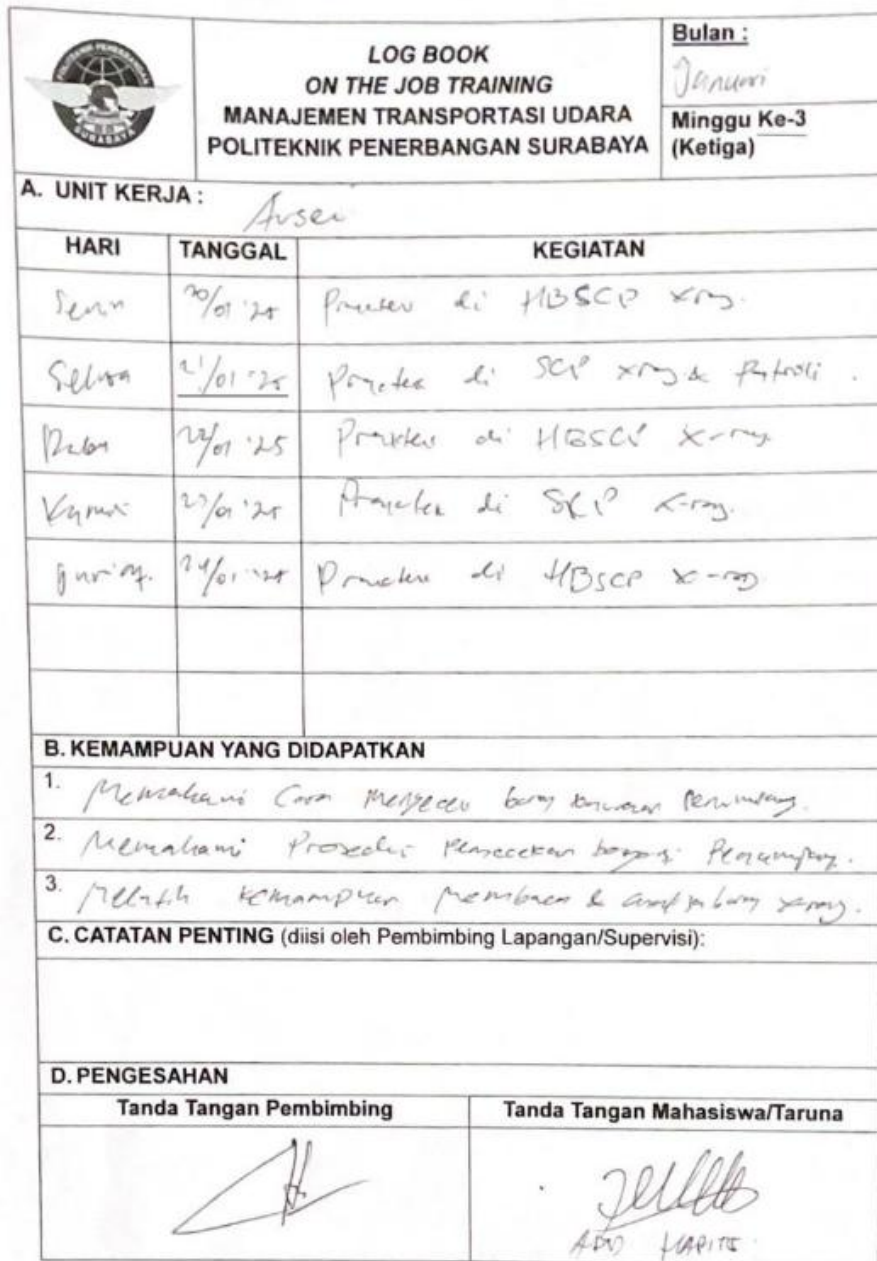 POLITEKNIK PENERBANGAN
SURABAYA
LOG BOOK
ON THE JOB TRAINING
MANAJEMEN TRANSPORTASI UDARA
POLITEKNIK PENERBANGAN SURABAYA
Bulan :
Januari
Minggu Ke-3
(Ketiga)
A. UNIT KERJA :
Avsec
HARI TANGGAL KEGIATAN
Senin 20/01 '25 di HBSCP xray.
Selasa 21/01 '25 di SCP xray & Patroli.
Rabu 22/01 '25 di HBSCP X-ray
Kamis 23/01 '25 di SCP X-ray.
24/01 '25 di HBSCP X-ray
B. KEMAMPUAN YANG DIDAPATKAN
1. Memahami Cara mengecek barang Penumpang.
2. Memahami Prosedur Pengecekan Penumpang.
3. Melatih Kemampuan Membaca & xray.
C. CATATAN PENTING (diisi oleh Pembimbing Lapangan/Supervisi):
D. PENGESAHAN
Tanda Tangan Pembimbing Tanda Tangan Mahasiswa/Taruna